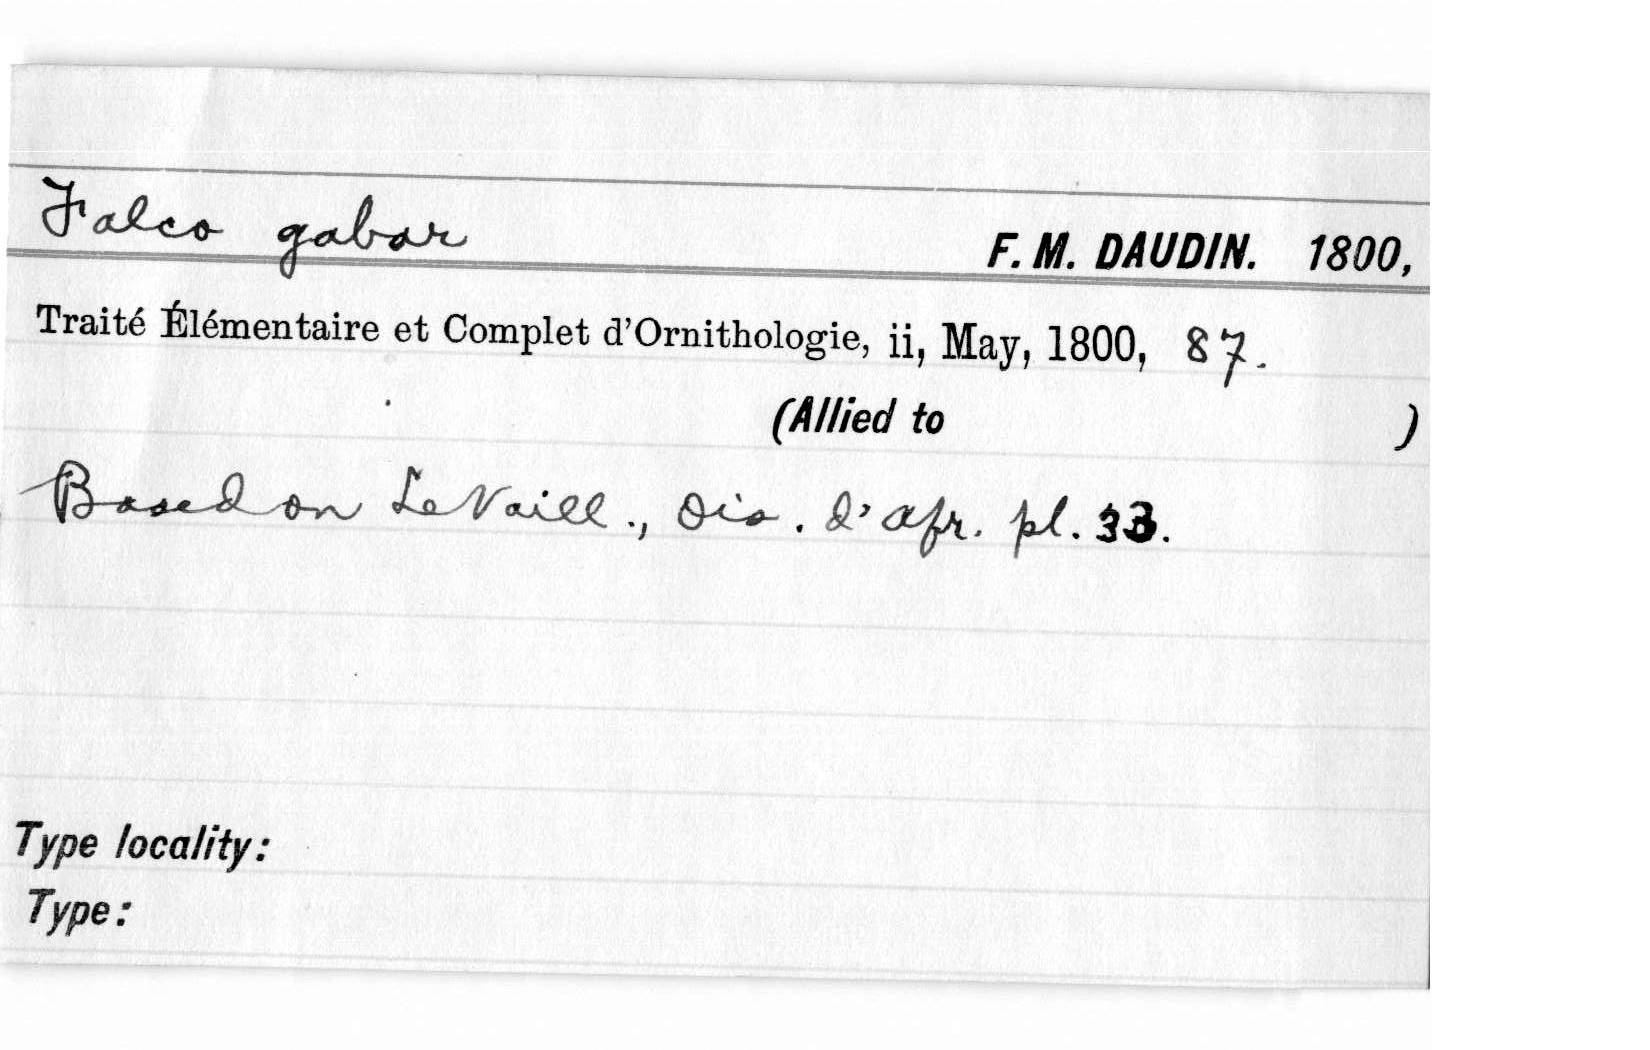 Falco gabar F. M. DAUDIN. 1800,
Traité Élémentaire et Complet d'Ornithologie, ii, May, 1800, 87.
(Allied to )
Based on LeVaill., Ois. d'Afr. pl. 33.
Type locality:
Type: